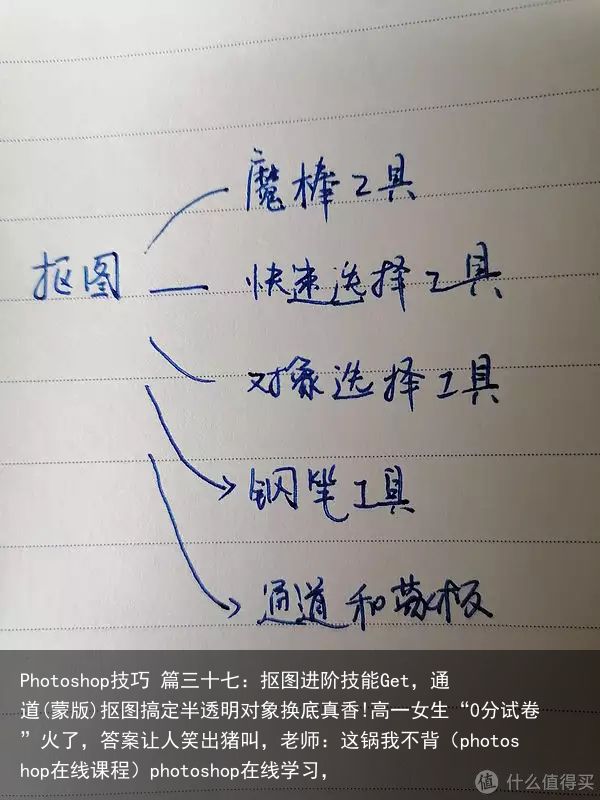 魔棒工具
抠图
快速选择工具
对象选择工具
钢笔工具
通道和蒙板
Photoshop技巧 篇三十七：抠图进阶技能Get，通
道(蒙版)抠图搞定半透明对象换底真香!高一女生“0分试卷
”火了，答案让人笑出猪叫，老师：这锅我不背（photos
hop在线课程）photoshop在线学习，
值 什么值得买